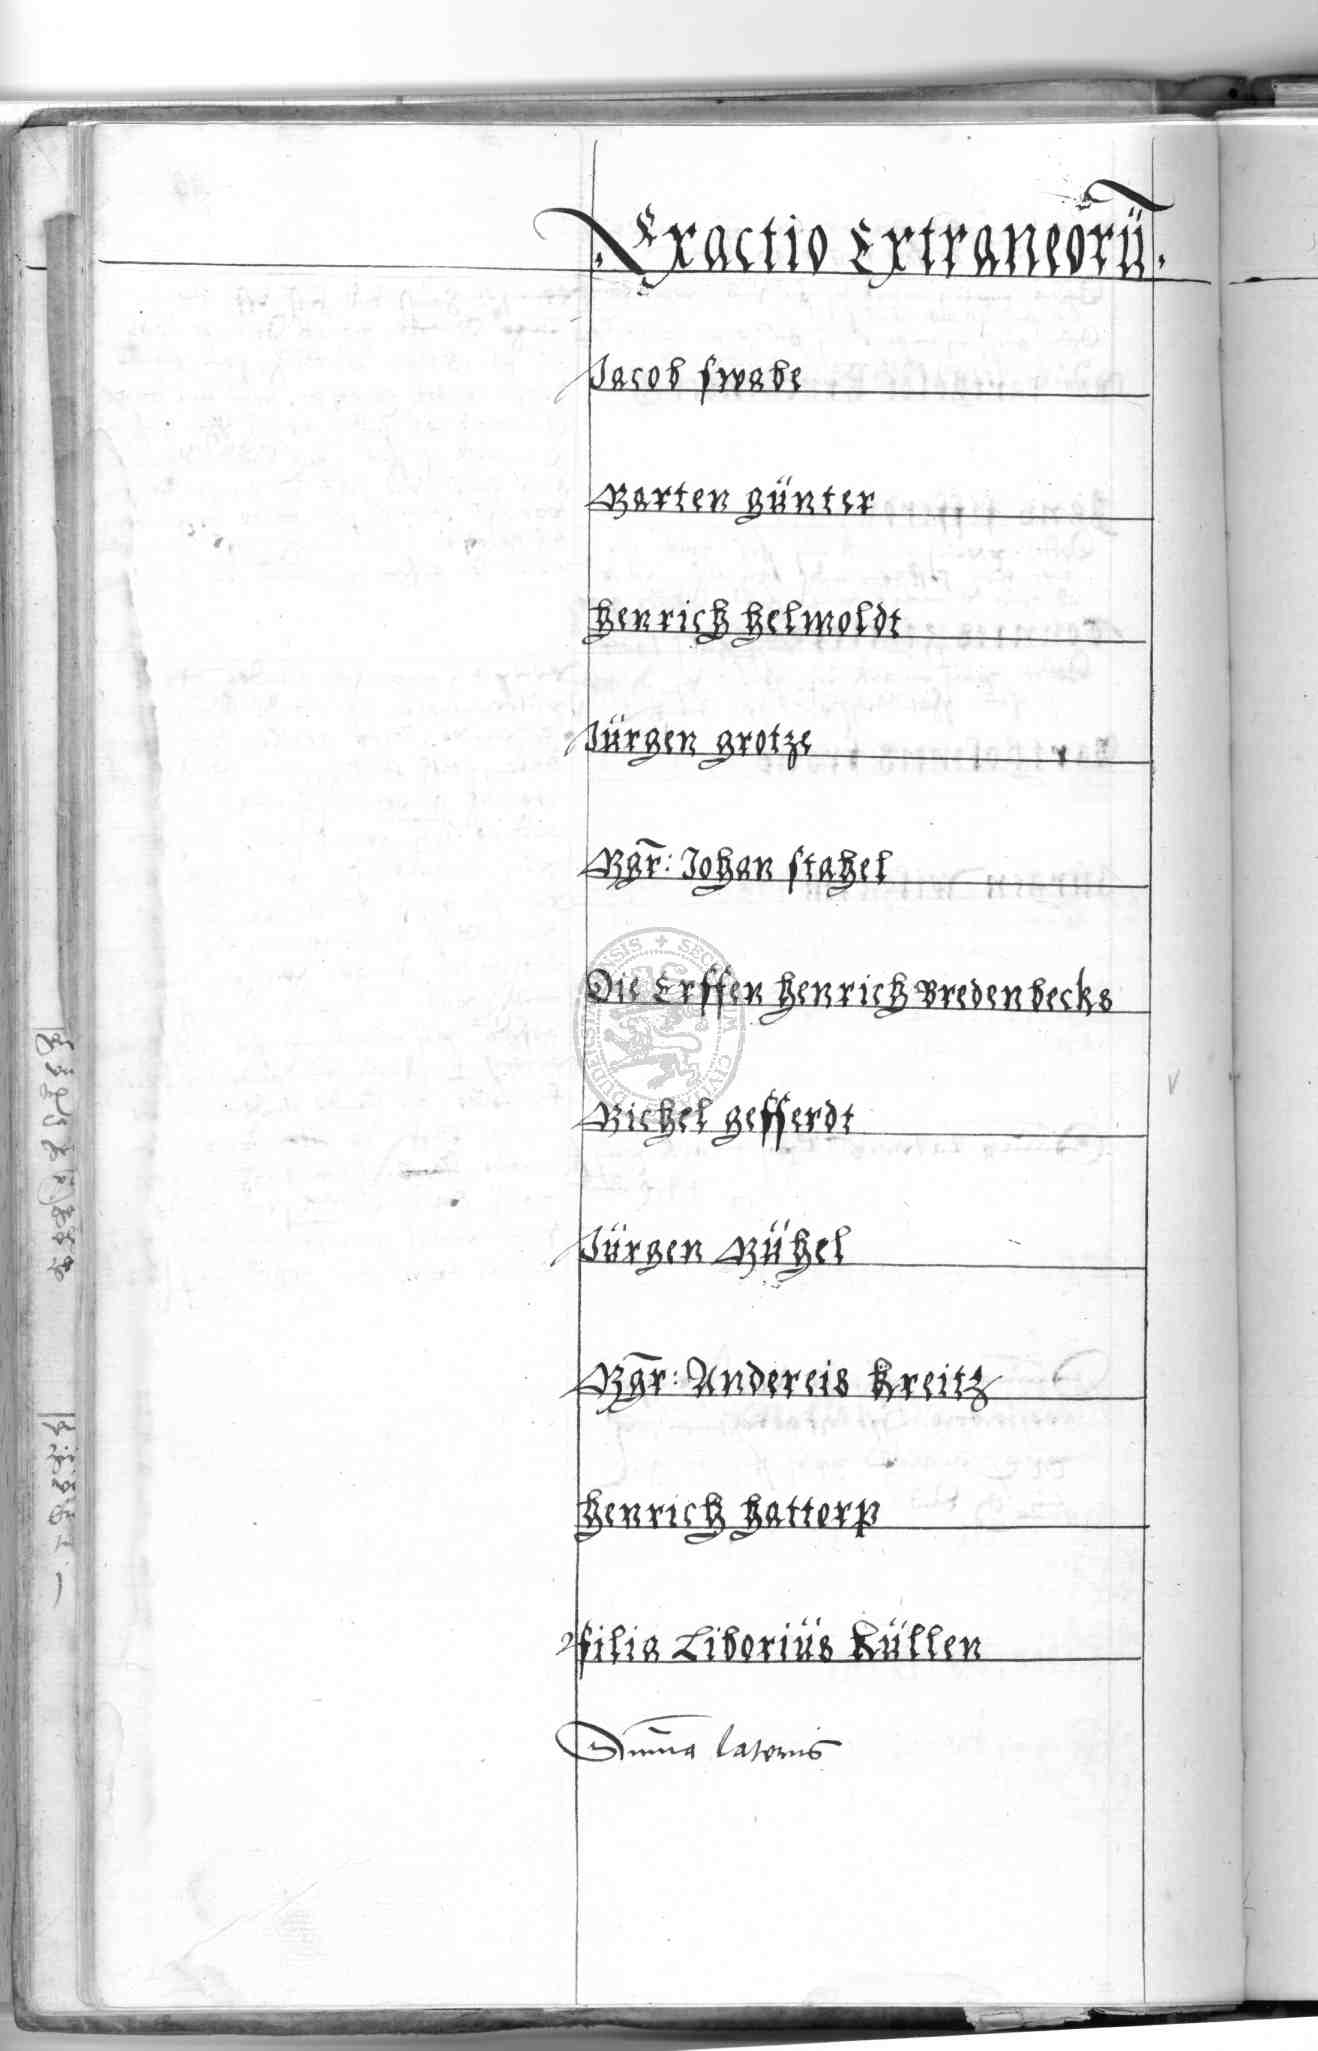 Exactio Extraneorū.
Jacob swabe
Marten günter
Henrich Helmoldt
Jürgen grotze
Mgr̄: Johan stahel
Die Erffen Henrich Bredenbecks
Michel gefferdt
Jürgen Mühel
Mgr̄: Andereis Kreitz
Henrich Hattorp
filia Liborius Küllen
Sum̄a lateris